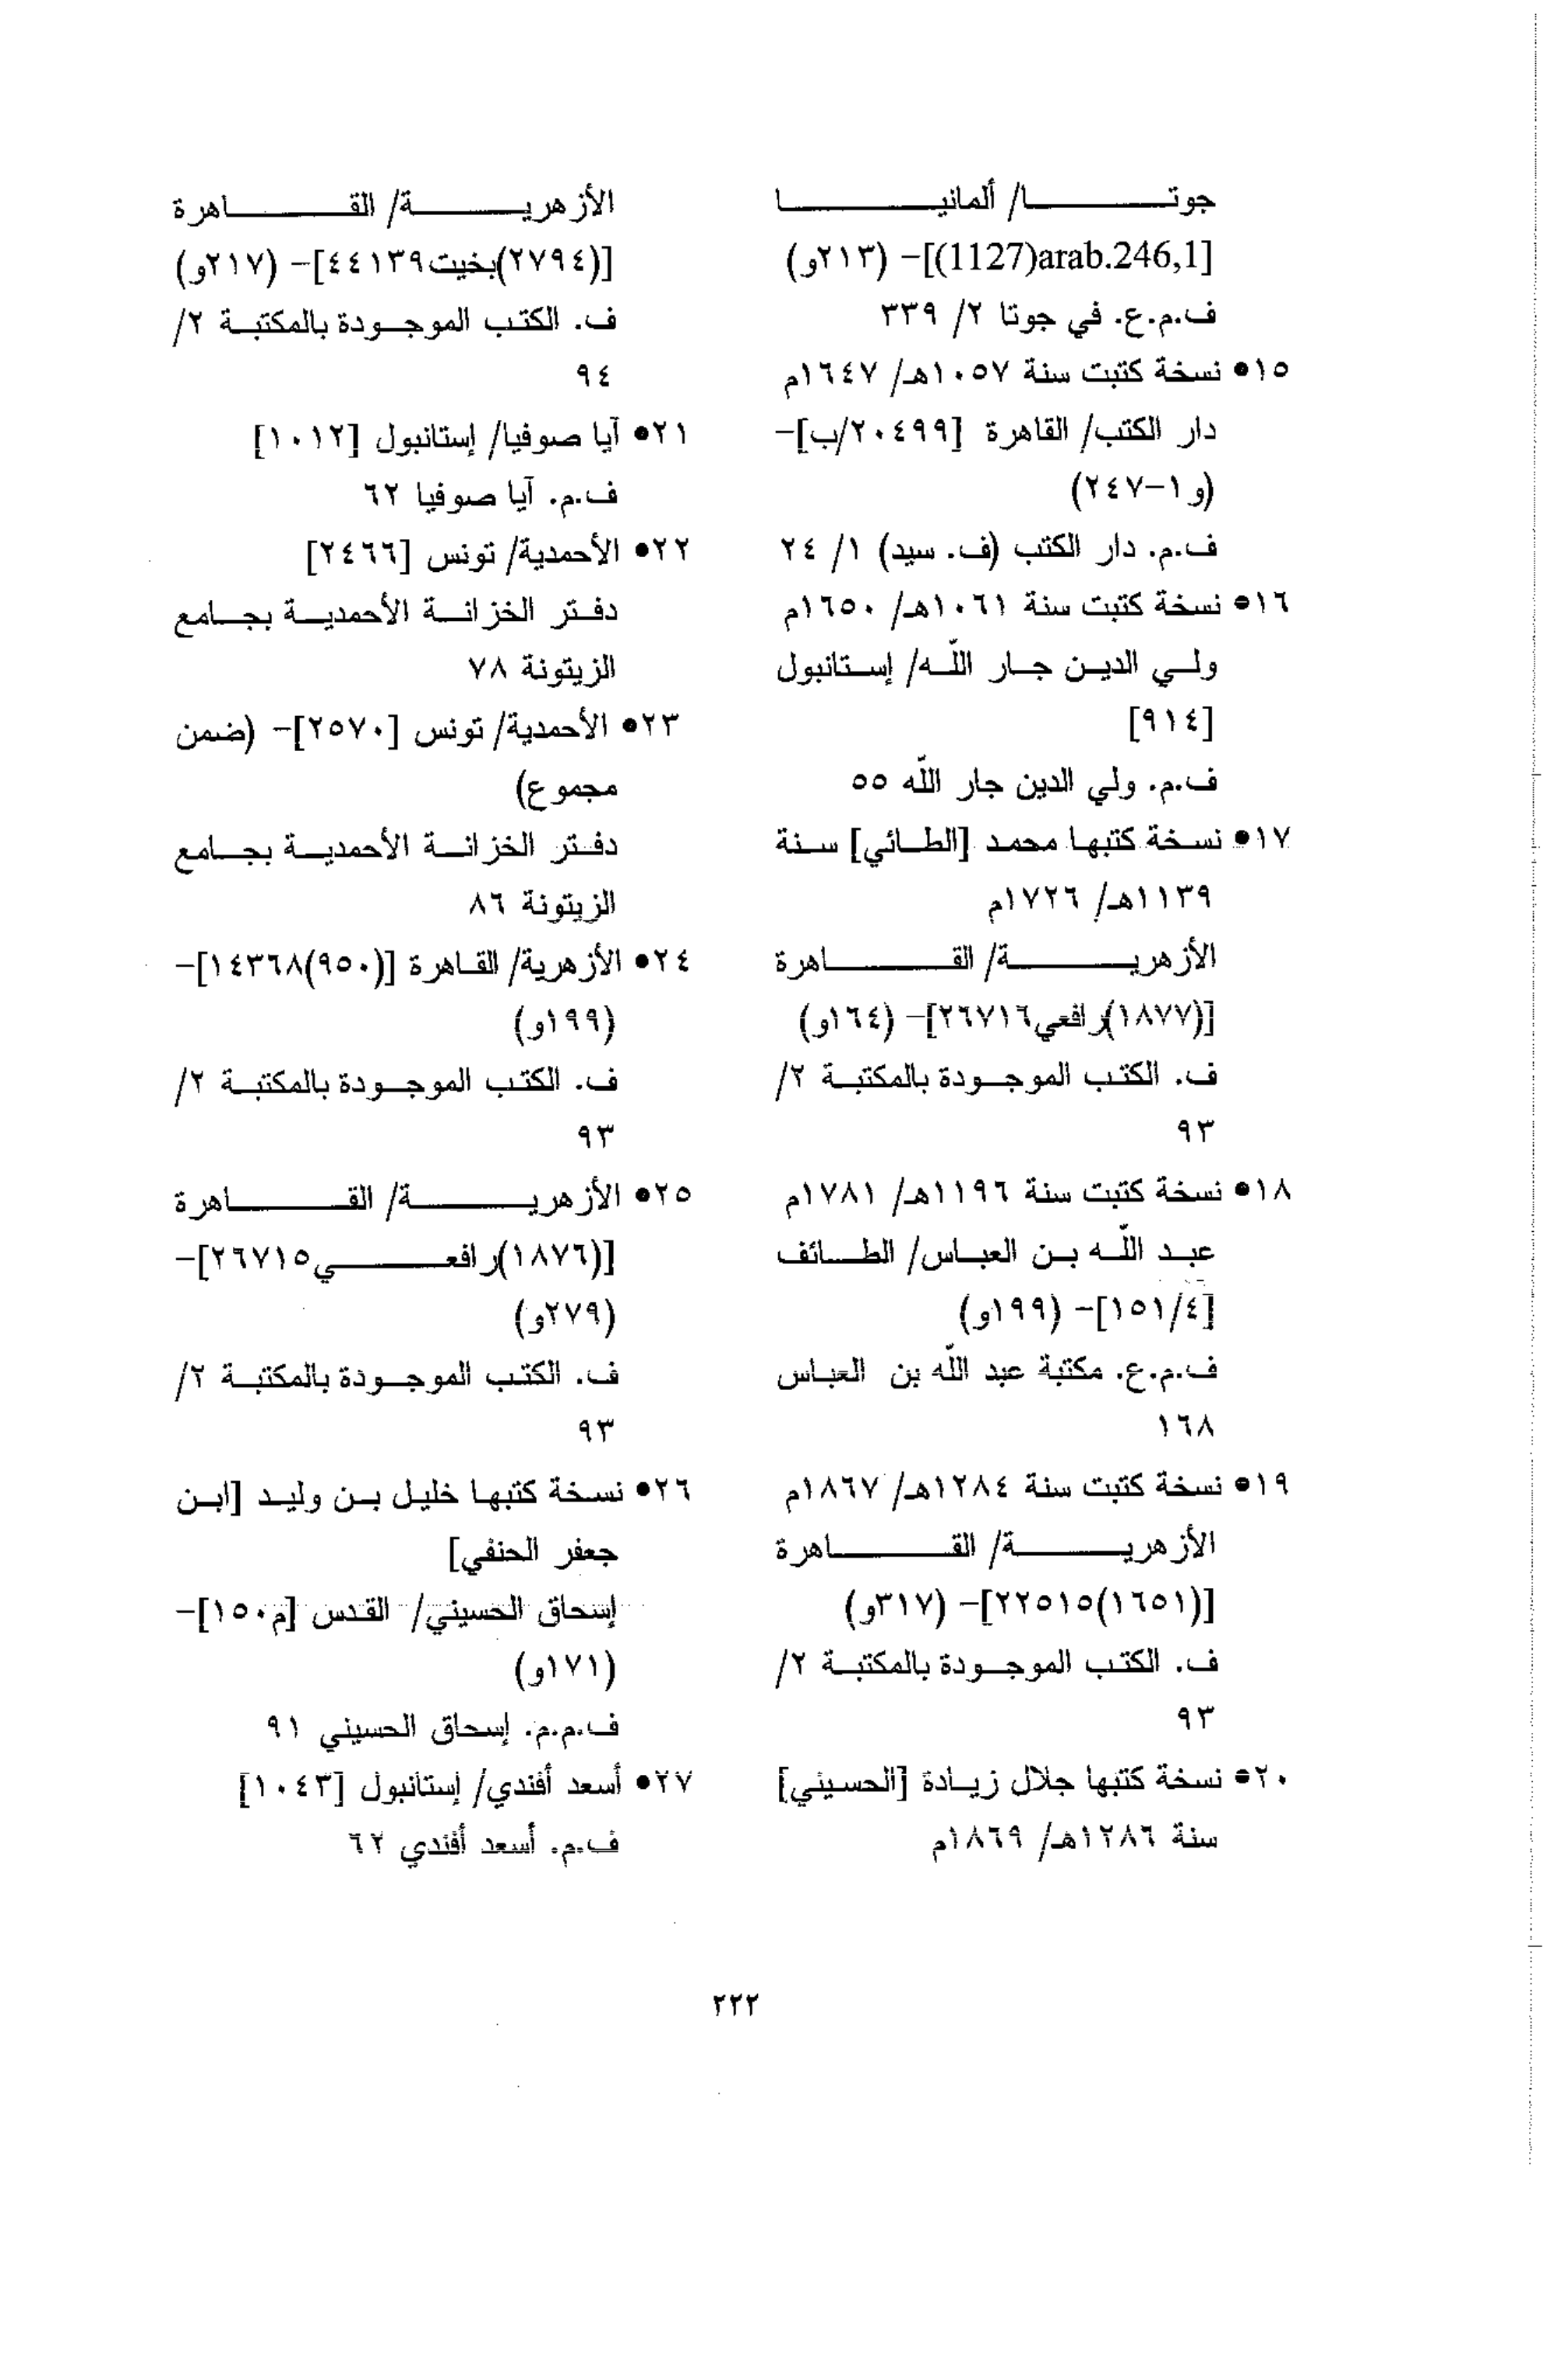 جوتا/ ألمانيا
[arab.246,1(1127)]- (٢١٣و)
ف.م.ع. في جوتا ٢/ ٣٣٩
١٥• نسخة كتبت سنة ١٠٥٧هـ/ ١٦٤٧م
دار الكتب/ القاهرة [٢٠٤٩٩/ب]-
(و١-٢٤٧)
ف.م. دار الكتب (ف. سيد) ١/ ٢٤
١٦• نسخة كتبت سنة ١٠٦١هـ/ ١٦٥٠م
ولي الدين جار اللّه/ إستانبول
[٩١٤]
ف.م. ولي الدين جار اللّه ٥٥
١٧• نسخة كتبها محمد [الطائي] سنة
١١٣٩هـ/ ١٧٢٦م
الأزهرية/ القاهرة
[(١٨٧٧)رافعي٢٦٧١٦]- (١٦٤و)
ف. الكتب الموجودة بالمكتبة ٢/
٩٣
١٨• نسخة كتبت سنة ١١٩٦هـ/ ١٧٨١م
عبد اللّه بن العباس/ الطائف
[٤/١٥١]- (١٩٩و)
ف.م.ع. مكتبة عبد اللّه بن العباس
١٦٨
١٩• نسخة كتبت سنة ١٢٨٤هـ/ ١٨٦٧م
الأزهرية/ القاهرة
[(١٦٥١)٢٢٥١٥]- (٣١٧و)
ف. الكتب الموجودة بالمكتبة ٢/
٩٣
٢٠• نسخة كتبها جلال زيادة [الحسيني]
سنة ١٢٨٦هـ/ ١٨٦٩م
الأزهرية/ القاهرة
[(٢٧٩٤)بخيت٤٤١٣٩]- (٢١٧و)
ف. الكتب الموجودة بالمكتبة ٢/
٩٤
٢١• آيا صوفيا/ إستانبول [١٠١٢]
ف.م. آيا صوفيا ٦٢
٢٢• الأحمدية/ تونس [٢٤٦٦]
دفتر الخزانة الأحمدية بجامع
الزيتونة ٧٨
٢٣• الأحمدية/ تونس [٢٥٧٠]- (ضمن
مجموع)
دفتر الخزانة الأحمدية بجامع
الزيتونة ٨٦
٢٤• الأزهرية/ القاهرة [(٩٥٠)١٤٣٦٨]-
(١٩٩و)
ف. الكتب الموجودة بالمكتبة ٢/
٩٣
٢٥• الأزهرية/ القاهرة
[(١٨٧٦)رافعي٢٦٧١٥]-
(٢٧٩و)
ف. الكتب الموجودة بالمكتبة ٢/
٩٣
٢٦• نسخة كتبها خليل بن وليد [ابن
جعفر الحنفي]
إسحاق الحسيني/ القدس [م١٥٠]-
(١٧١و)
ف.م.م. إسحاق الحسيني ٩١
٢٧• أسعد أفندي/ إستانبول [١٠٤٣]
ف.م. أسعد أفندي ٦٢
٢٢٢